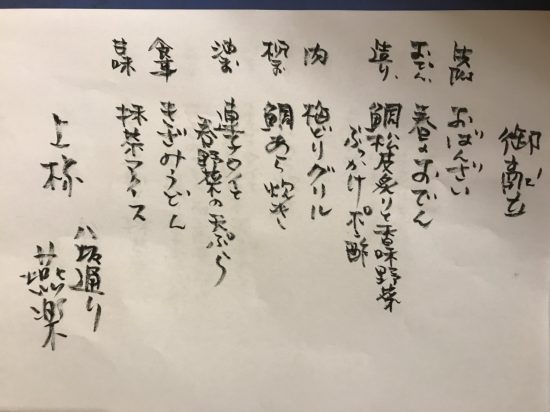 御献立
先附 おばんざい
おでん 春のおでん
造り 鯛松皮炙りと香味野菜
ぶっかけポン酢
肉 梅どりグリル
炊き 鯛あら炊き
油物
春野菜の天ぷら
食事 きざみうどん
甘味 抹茶アイス
上
八坂通り
燕楽